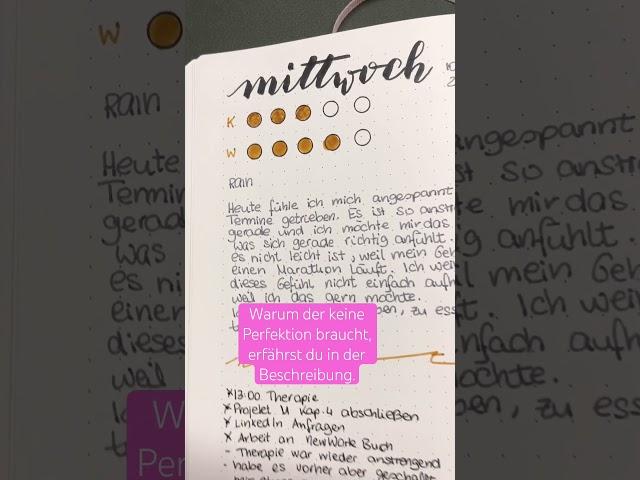 mittwoch
K
W
RAIN
Heute fühle ich mich angespannt
Termine getrieben. Es ist so anstr
gerade und ich möchte mir das
was sich gerade richtig anfühlt.
es nicht leicht ist, weil mein Geh
einen Marathon läuft. Ich wei
dieses Gefühl nicht einfach aufh
weil ich das gern möchte.
ben, zu ess
Warum der keine
Perfektion braucht,
erfährst du in der
Beschreibung.
*13:00 Therapie
x Projekt M Kap. 4 abschließen
x LinkedIn Anfragen
x Arbeit an NewWork Buch
- Therapie war wieder anstrengend
- habe es vorher aber geschafft